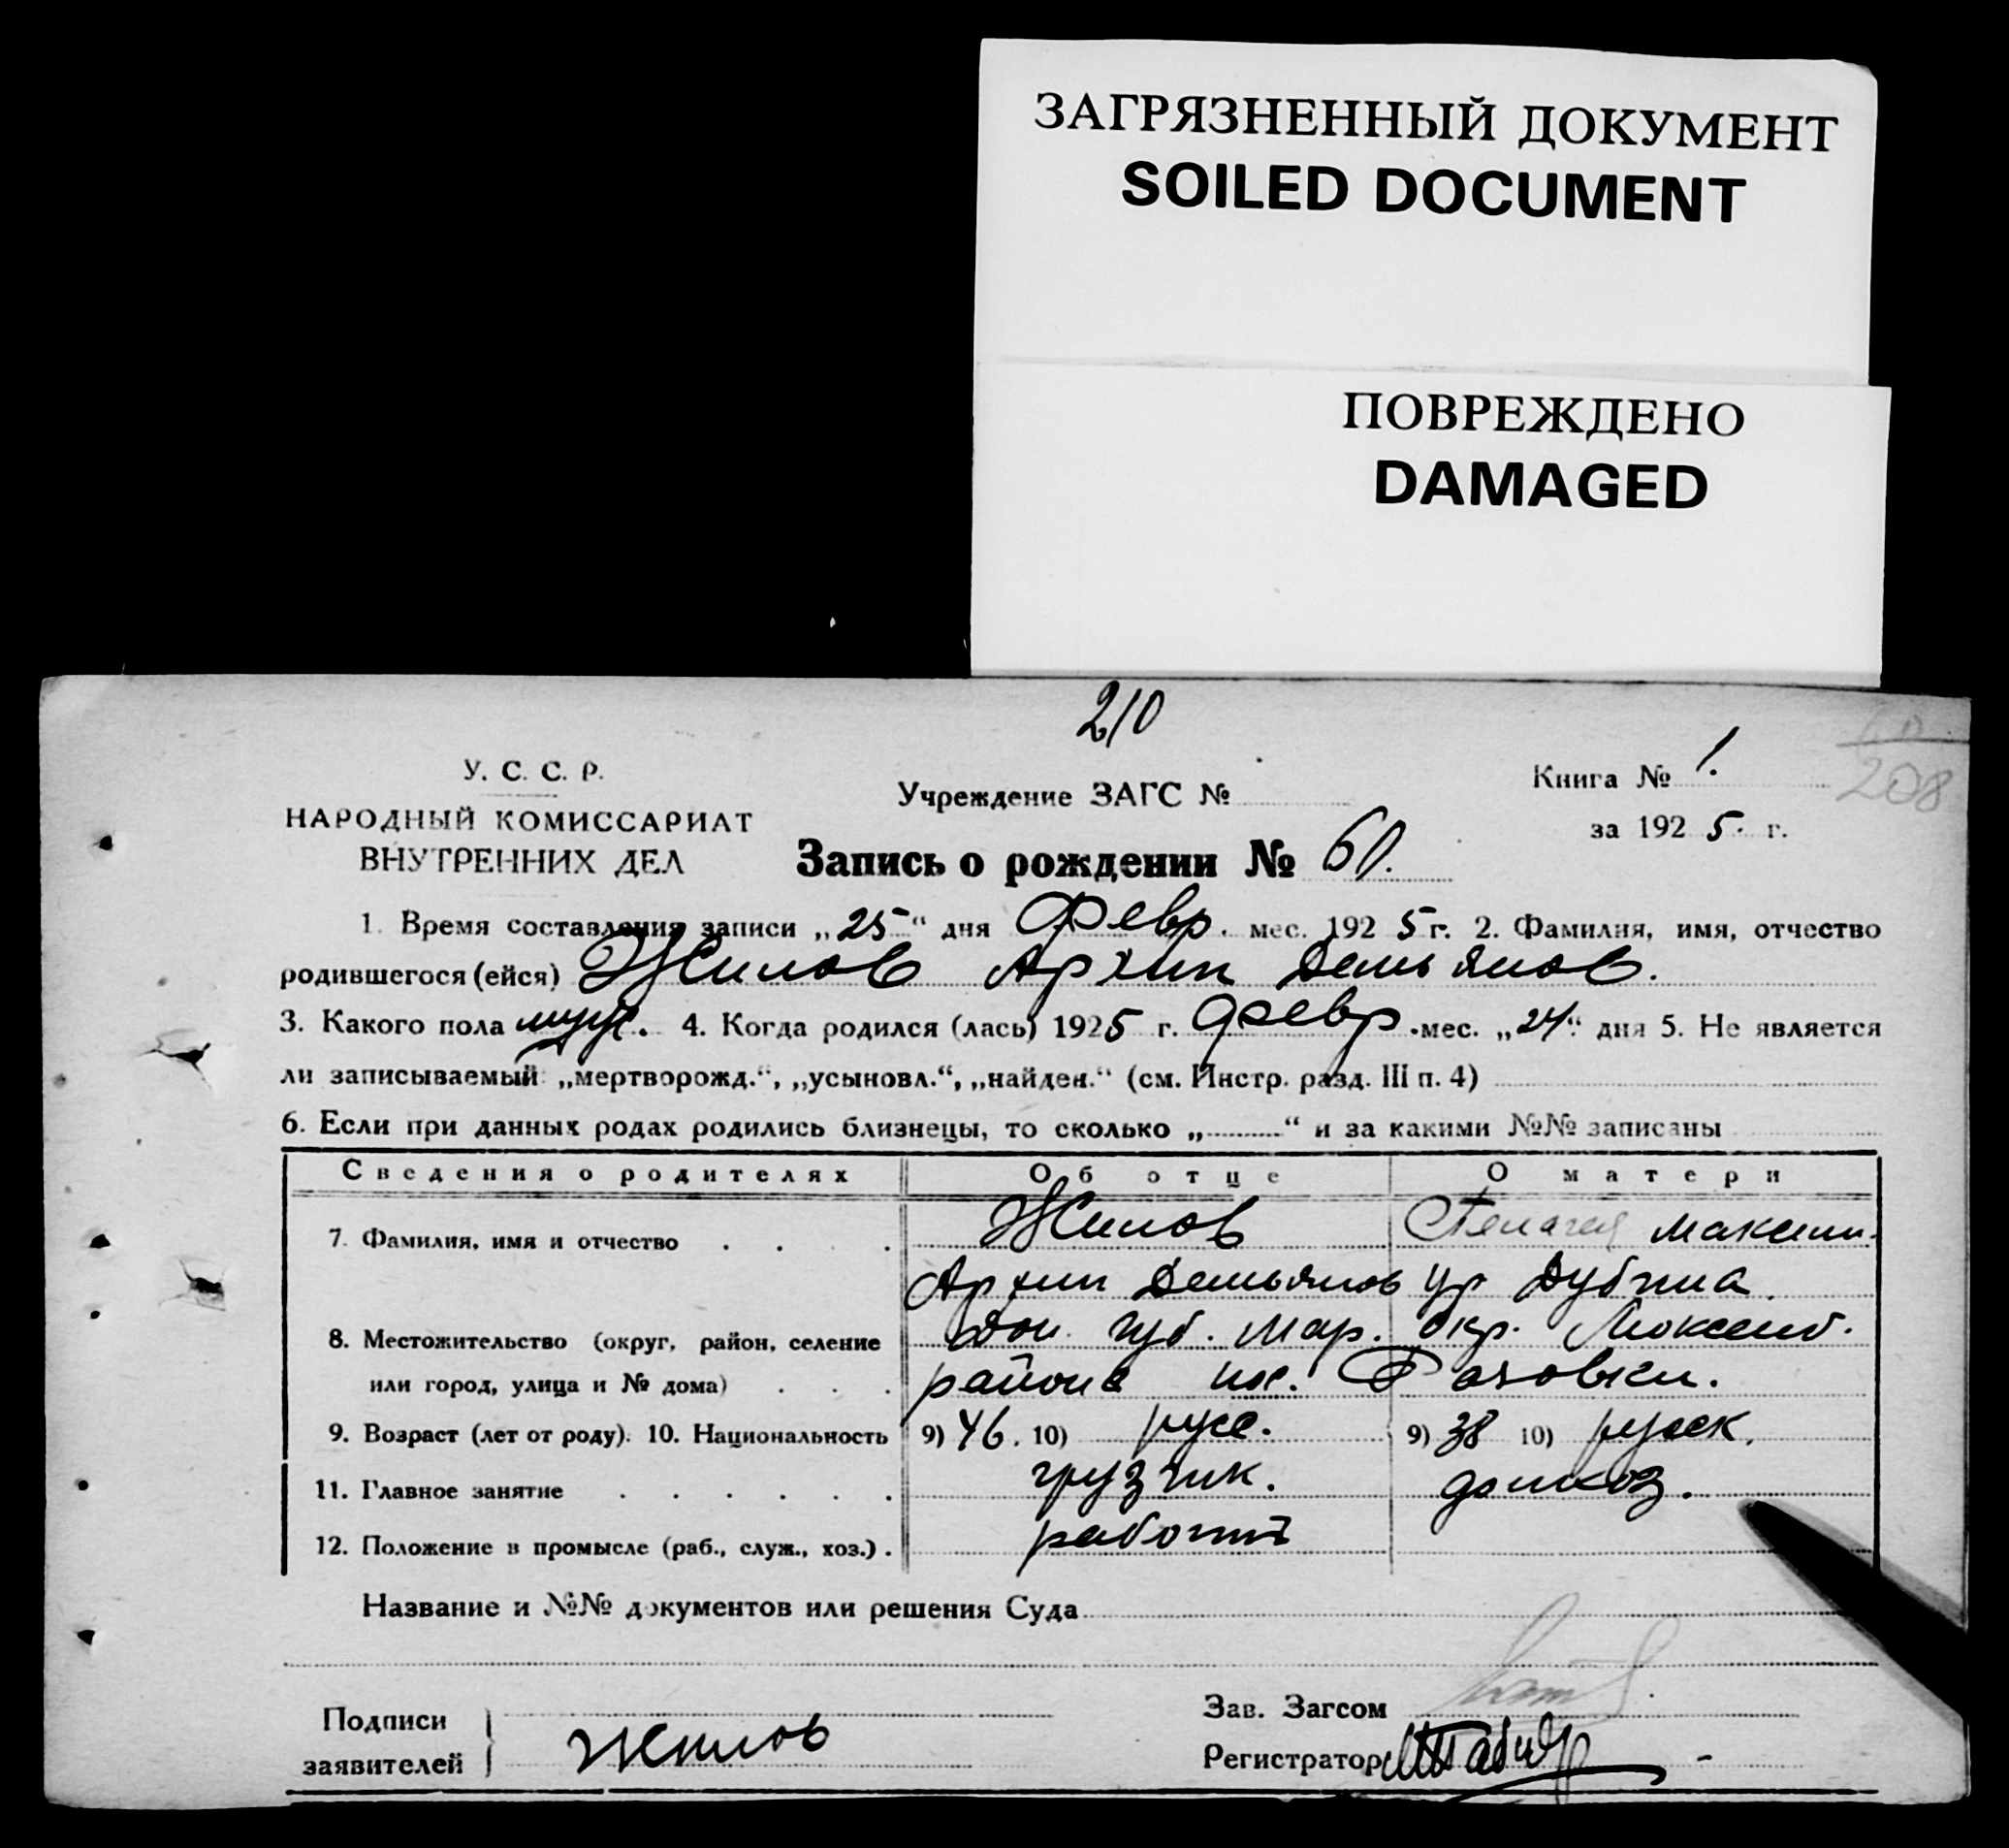 ЗАГРЯЗНЕННЫЙ ДОКУМЕНТ
SOILED DOCUMENT
ПОВРЕЖДЕНО
DAMAGED
210
У. С. С. Р.
НАРОДНЫЙ КОМИССАРИАТ
ВНУТРЕННИХ ДЕЛ
Учреждение ЗАГС №
Книга № 1.
208
за 1925. г.
Запись о рождении № 60.
1. Время составления записи „25“ дня Февр. мес. 1925 г. 2. Фамилия, имя, отчество
родившегося (ейся) Жилов Архип Демьянов.
3. Какого пола муж. 4. Когда родился (лась) 1925 г. Февр. мес. „24“ дня 5. Не является
ли записываемый „мертворожд.“, „усыновл.“, „найден.“ (см. Инстр. разд. III п. 4)
6. Если при данных родах родились близнецы, то сколько „ “ и за какими №№ записаны
Сведения о родителях Об отце О матери
7. Фамилия, имя и отчество Жилов Пелагея Максим.
Архип Демьянов ур Дубина
8. Местожительство (округ, район, селение Дон. губ. Мар. окр.
или город, улица и № дома) района Розовки.
9. Возраст (лет от роду). 10. Национальность 9) 46. 10) русс. 9) 38 10) русск.
11. Главное занятие грузчик. домхоз.
12. Положение в промысле (раб., служ., хоз.)
Название и №№ документов или решения Суда
Подписи
заявителей Жилов
Зав. Загсом
Регистратор